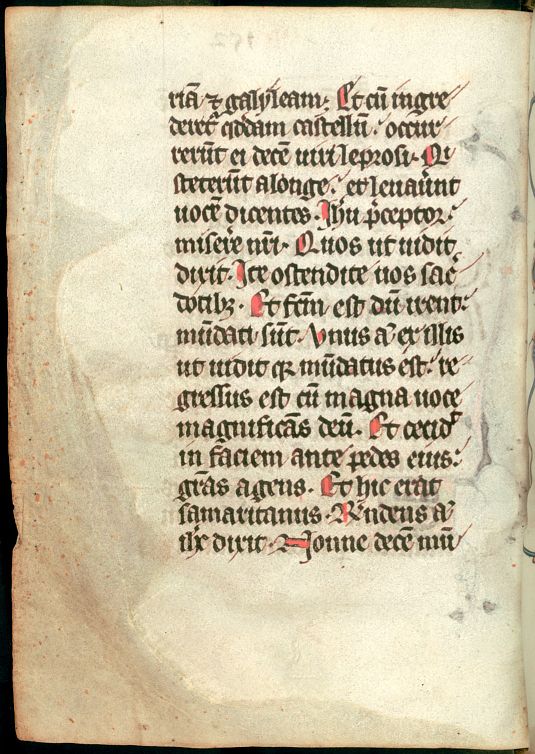 riā ⁊ galyleam. Et cū ingre
deret᷑ qͦdam castellū. occur
rerūt ei decē uiri leprosi. Qi
steterūt alonge. et leuaūnt
uocē dicentes. Ihu p̄ceptor.
misere nri. Quos ut uidit
dixit. Ite ostendite uos sac̄
dotibꝫ. Et fcm̄ est dū irent.
mūdati sūt. Unus aͣ ex illis
ut uidit qꝛ mūdatus est. re
gressus est cū magna uoce
magnificās deū. Et cecid᷑
in faciem ante pedes eius.
grās agens. Et hic erat
samaritanus. Rn̄dens aͣ
ihc dixit. Nonne decē mū